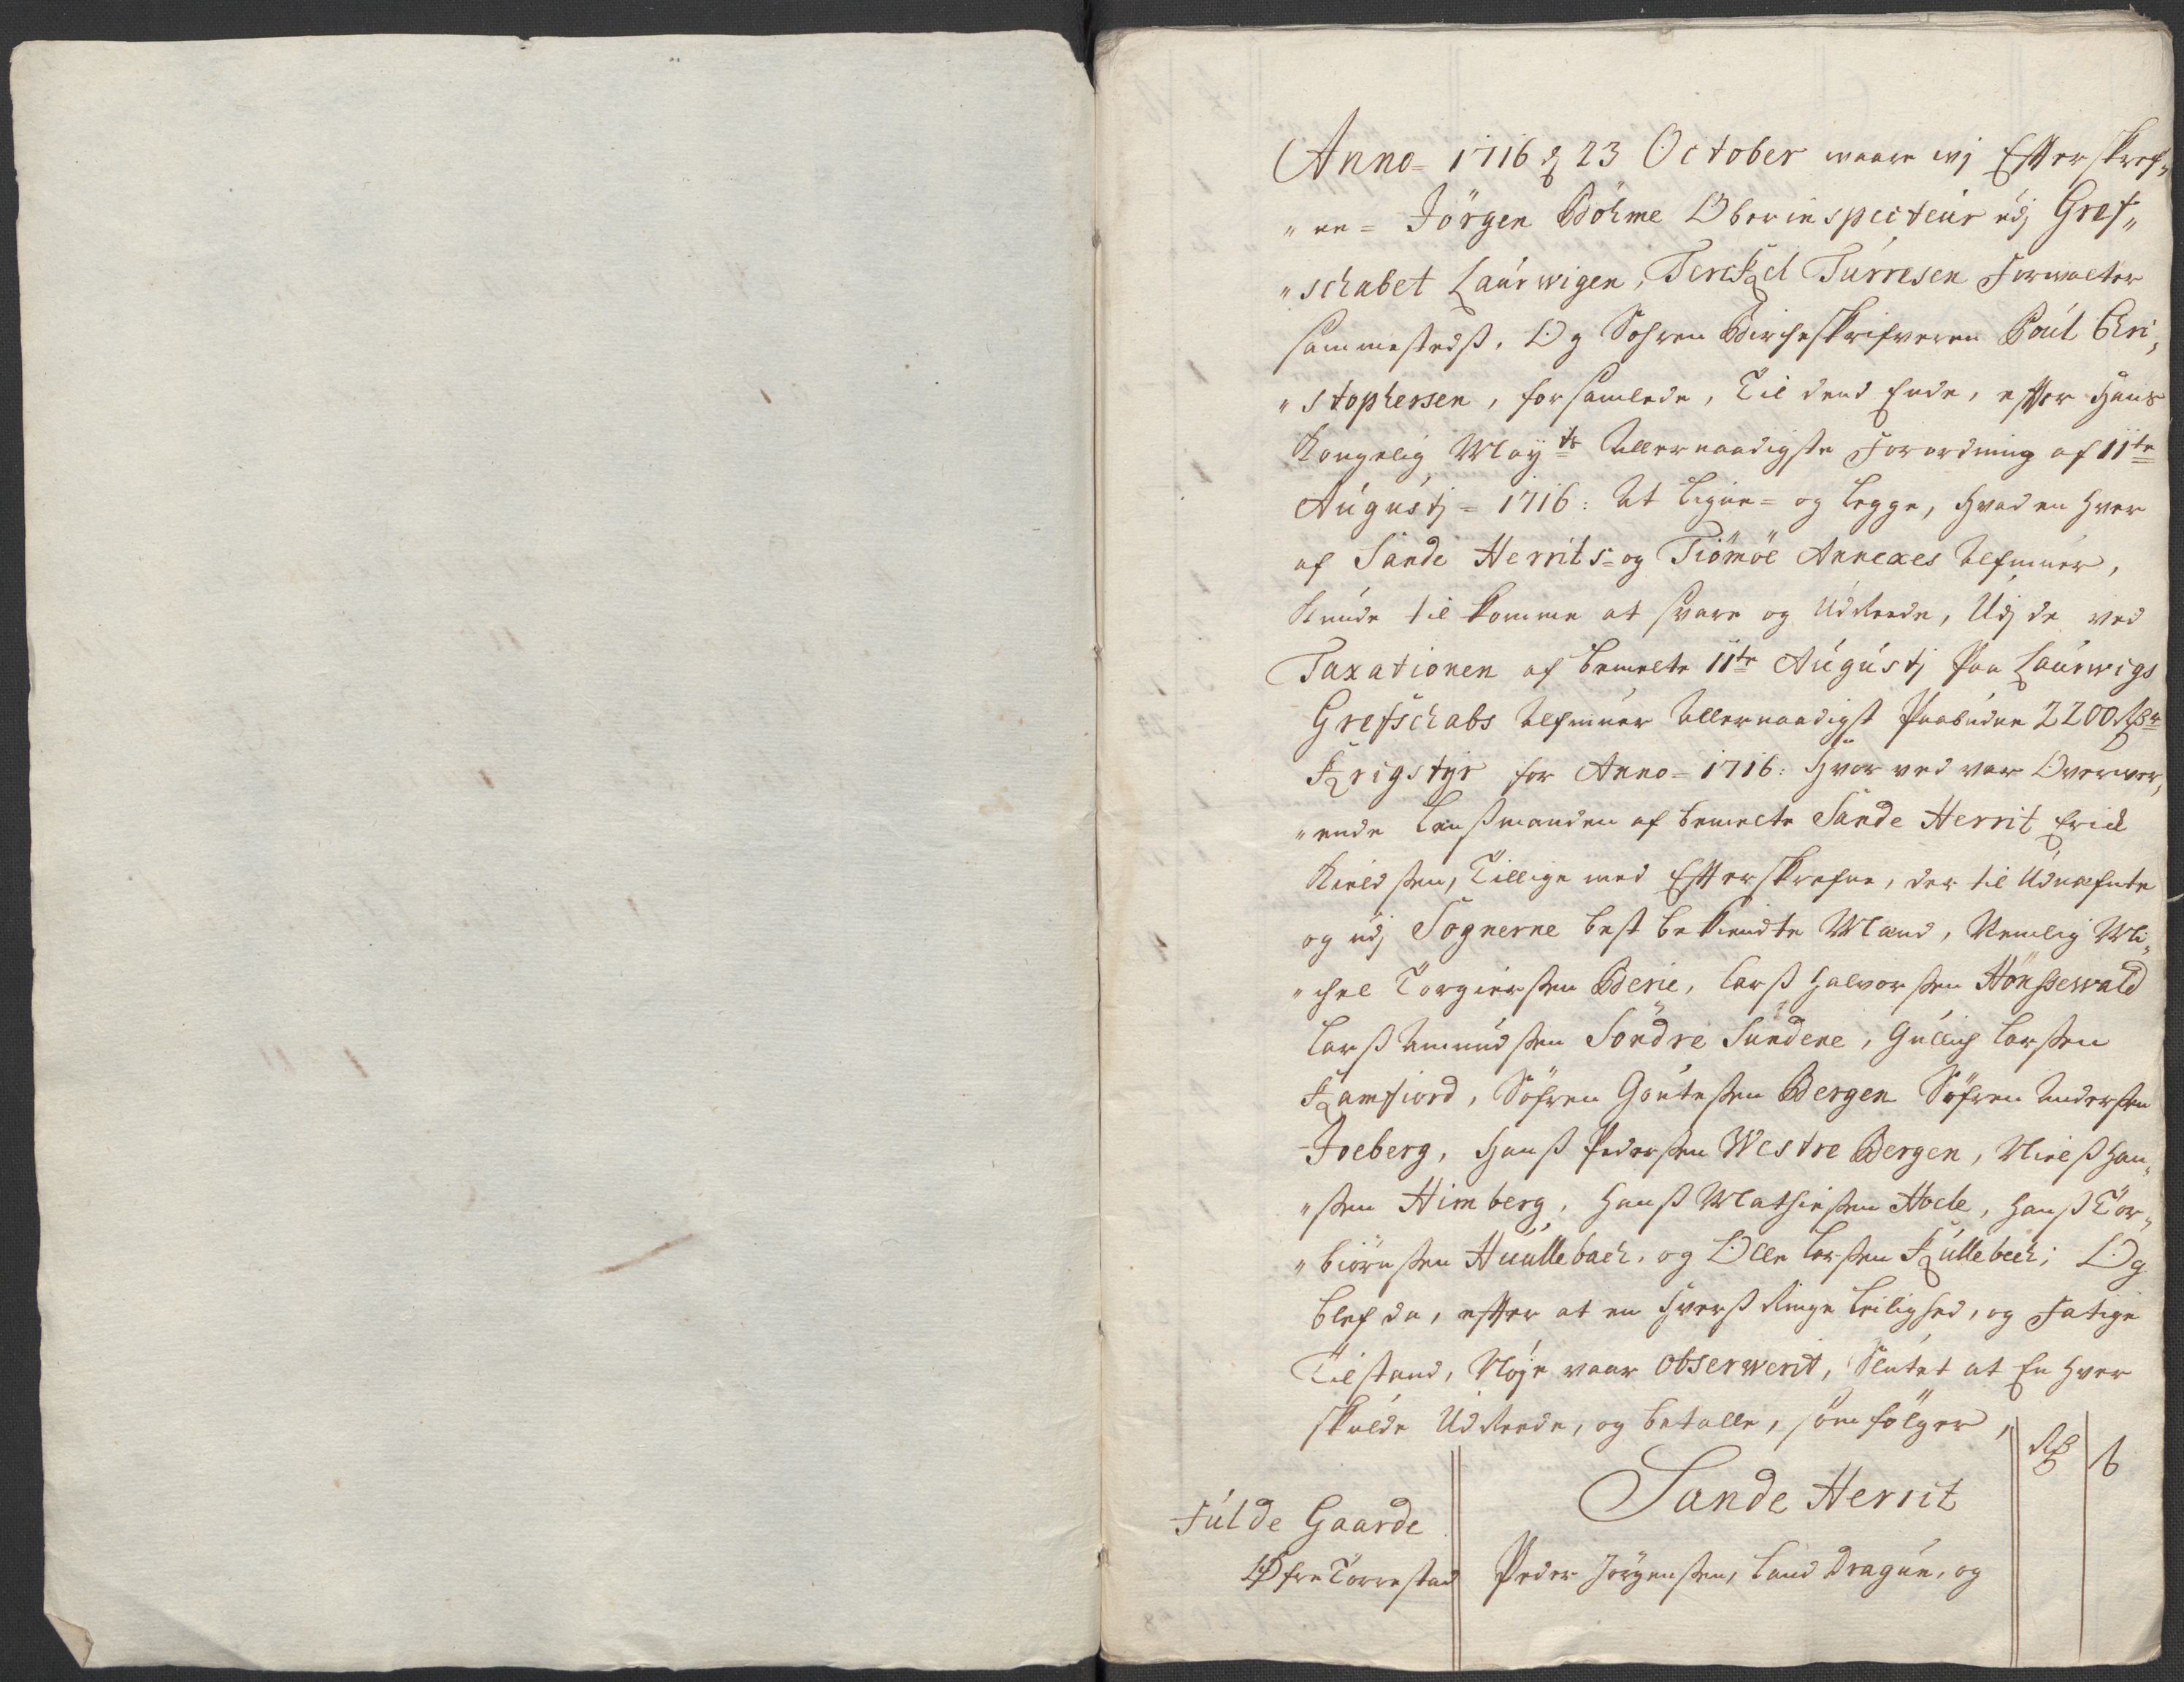 Anno= 1716 d 23 October waare wj Efterskref„
„ne= Jörgen Böhme Oberinspecteur udj Gref„
„schabet Laurwigen, Terckel Turresen Forwalter
sammestedß. Og Sohren Birckeskrifveren Poul Chri„
„stophersen, forsamlede, Til dend Ende, efter Hans
Kongelig Mayts Allernaadigste Forordning af 11te
Augustj = 1716: At ligne= og legge, hvad en hver
af Sande Herrits= og Tiömöe Annexes Almuer,
Kunde til komme at svare og Udreede, Udj de ved
Taxationen af bemelte 11te Augustj paa Laurwigs
Grefschabs Almuer Allernaadigst Paabudne 2200 Rdr
Krigstyr for Anno= 1716: Hvor ved var Overver„
„ende Lenßmanden af bemelte Sande Herrit Erick
Kieldsen, Tillige med Efterskrefne, der til Udnefnte
og udj Sognerne best bekiendte Mænd, Nemlig Mi„
„chel Torgiersen Berie, Larß Halvorsen Hönssewald
Larß Amundsen Söndre Sundene, Gullich Larsen
Kamfiord, Söfren Goutesen Bergen Söfren Andersen
Joeberg, Hanß Pedersen Westre Bergen, Nielß Han„
„sen Himberg, Hanß Mathiesen Hocle, Hanß Tor„
„biörnsen Huullebach, og Olle Larsen Kullebech; Og
blef da, efter at en hverß Ringe leilighed, og Fatige
Tilstand, Nöje vaar Obserwerit, Sluttet at En hver
skulde Udreede, og betalle, som fölger,
Rd ß
Sande Herrit
Fulde Gaarde
Øfre Torrestad Peder Jörgensen, Land Dragun, og